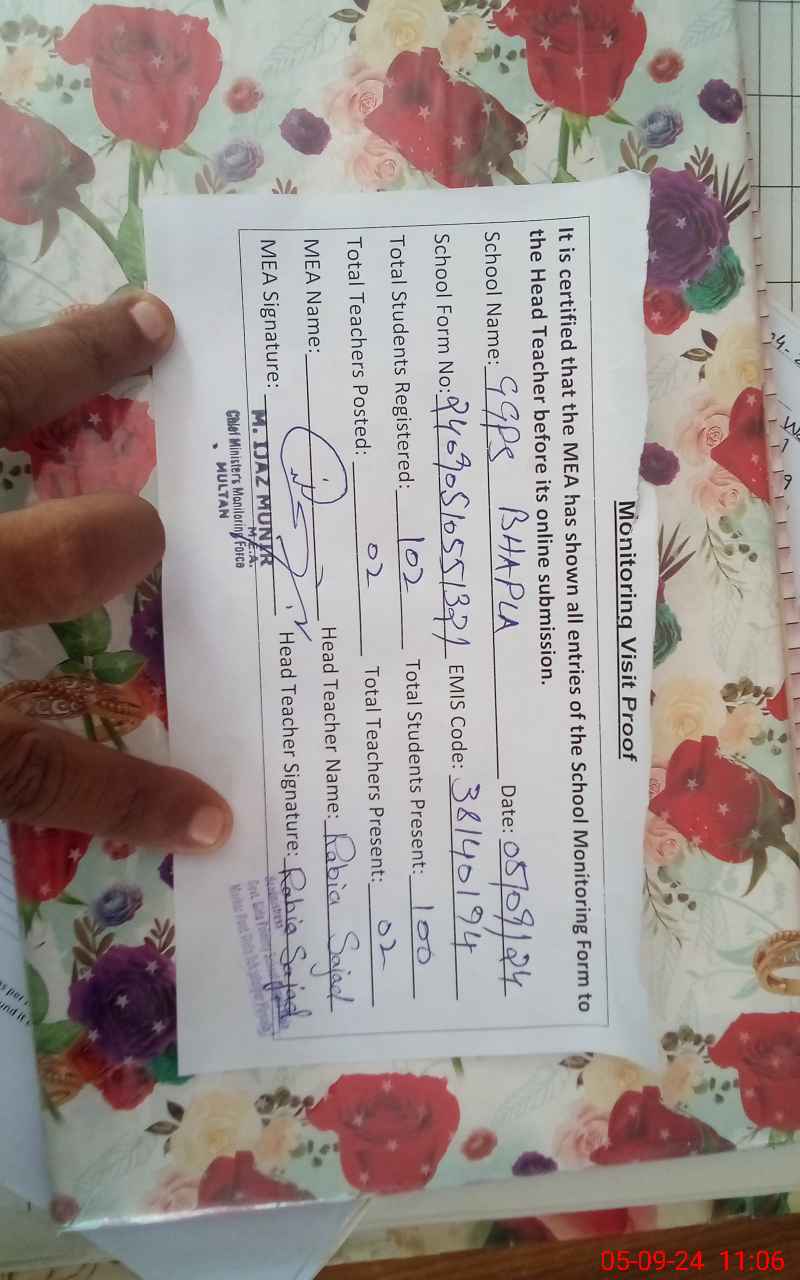 Monitoring Visit Proof
It is certified that the MEA has shown all entries of the School Monitoring Form to
the Head Teacher before its online submission.
School Name: GGPS BHAPLA Date: 05/09/24
School Form No: EMIS Code: 38140194
Total Students Registered: 102 Total Students Present: 100
Total Teachers Posted: 02 Total Teachers Present: 02
MEA Name: Head Teacher Name: Rabia Sajad
MEA Signature: Head Teacher Signature: Rabia Sajad
M. IJAZ MUNIR
M.E.A.
Chief Minister's Monitoring Force
MULTAN
05-09-24 11:06